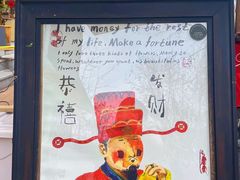 I have money for the rest
of my life. Make a fortune
I only love three kinds of flowers, Money to
spend, whatever you want, as beautiful as
flowers
恭 发
禧 财